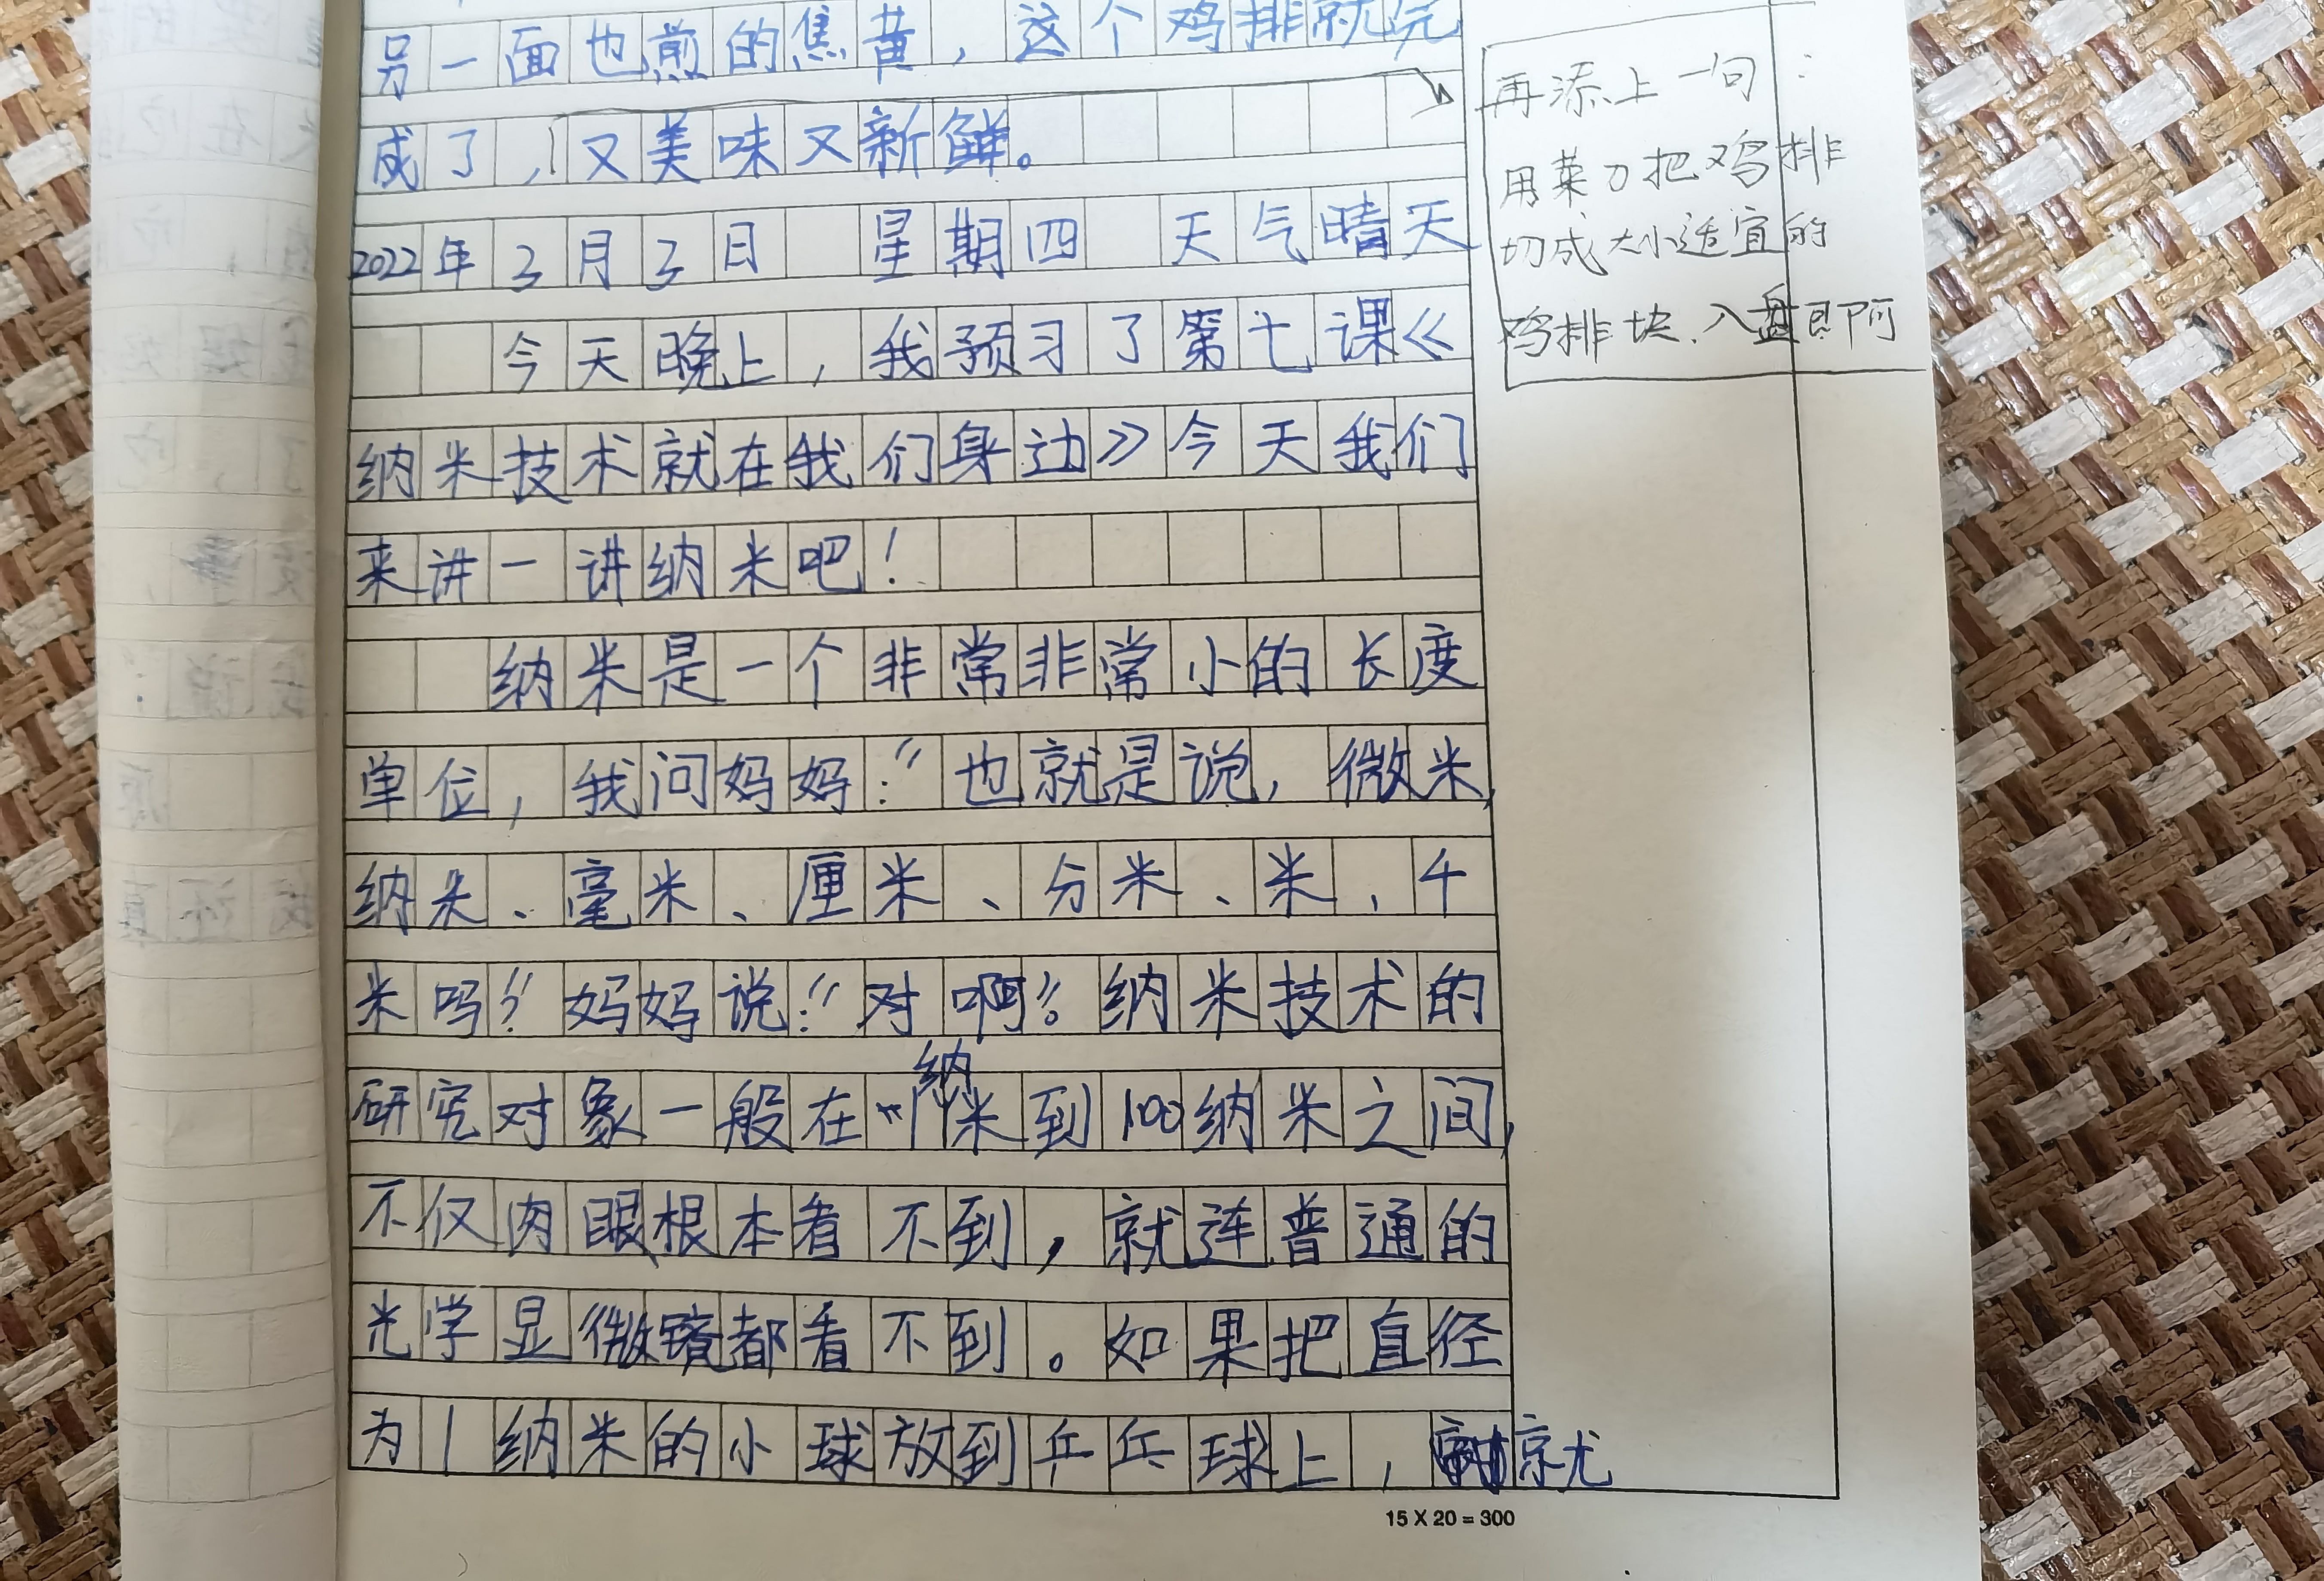 另一面也煎的焦黄，这个鸡排就完
成了，又美味又新鲜。
2022年3月3日 星期四 天气晴天
今天晚上，我预习了第七课《
纳米技术就在我们身边》今天我们
来讲一讲纳米吧！
纳米是一个非常非常小的长度
单位，我问妈妈：“也就是说，微米，
纳米、毫米、厘米、分米、米、千
米吗？”妈妈说：“对啊”。纳米技术的
研究对象一般在1纳米到100纳米之间，
不仅肉眼根本看不到，就连普通的
光学显微镜都看不到。如果把直径
为1纳米的小球放到乒乓球上，就
再添上一句：
用菜刀把鸡排
切成大小适宜的
鸡排块.入盘即可
15 X 20 = 300